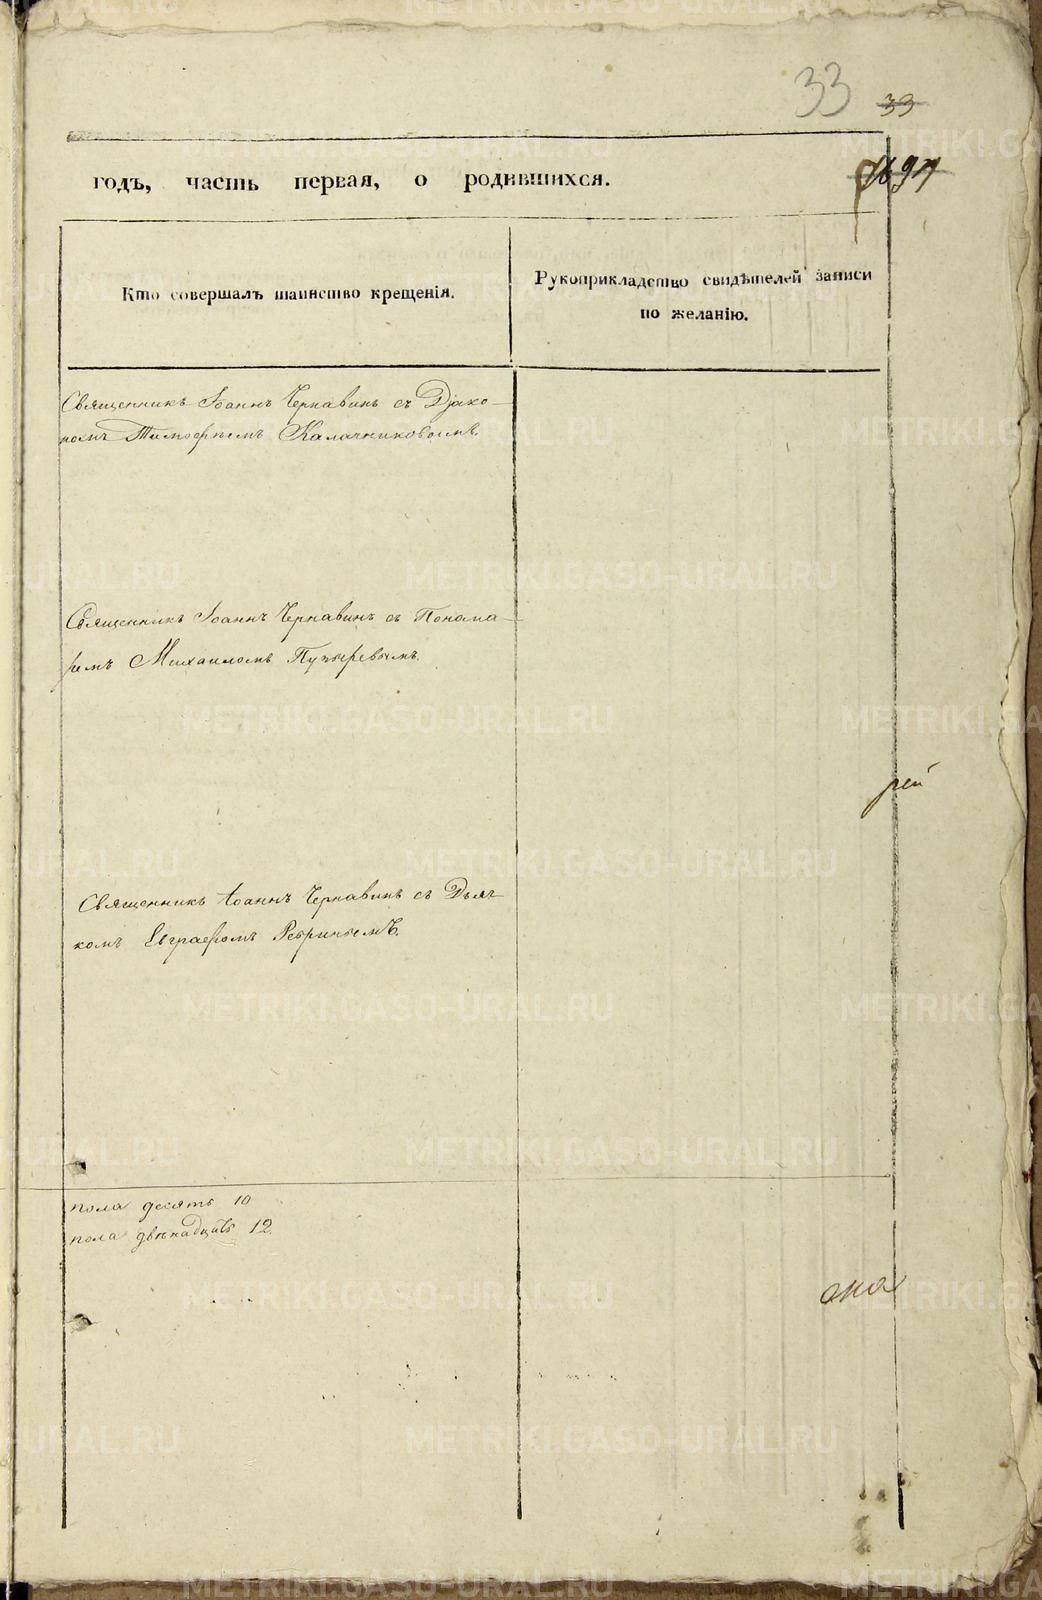 33 33
1697
годъ, часть первая, о родившихся.
Кто совершалъ таинство крещенія.
Рукоприкладство свидѣтелей записи
по желанію.
Священникъ Іоаннъ Чернавинъ съ Діако-
номъ Тимофѣемъ Калачниковымъ.
Священникъ Іоаннъ Чернавинъ съ Понома-
ремъ Михаиломъ Пузыревымъ.
рей
Священникъ Іоаннъ Чернавинъ съ Дьяч-
комъ Евграфомъ
пола десять 10
пола двѣнадцать 12.
она
METRIKI.GASO-URAL.RU